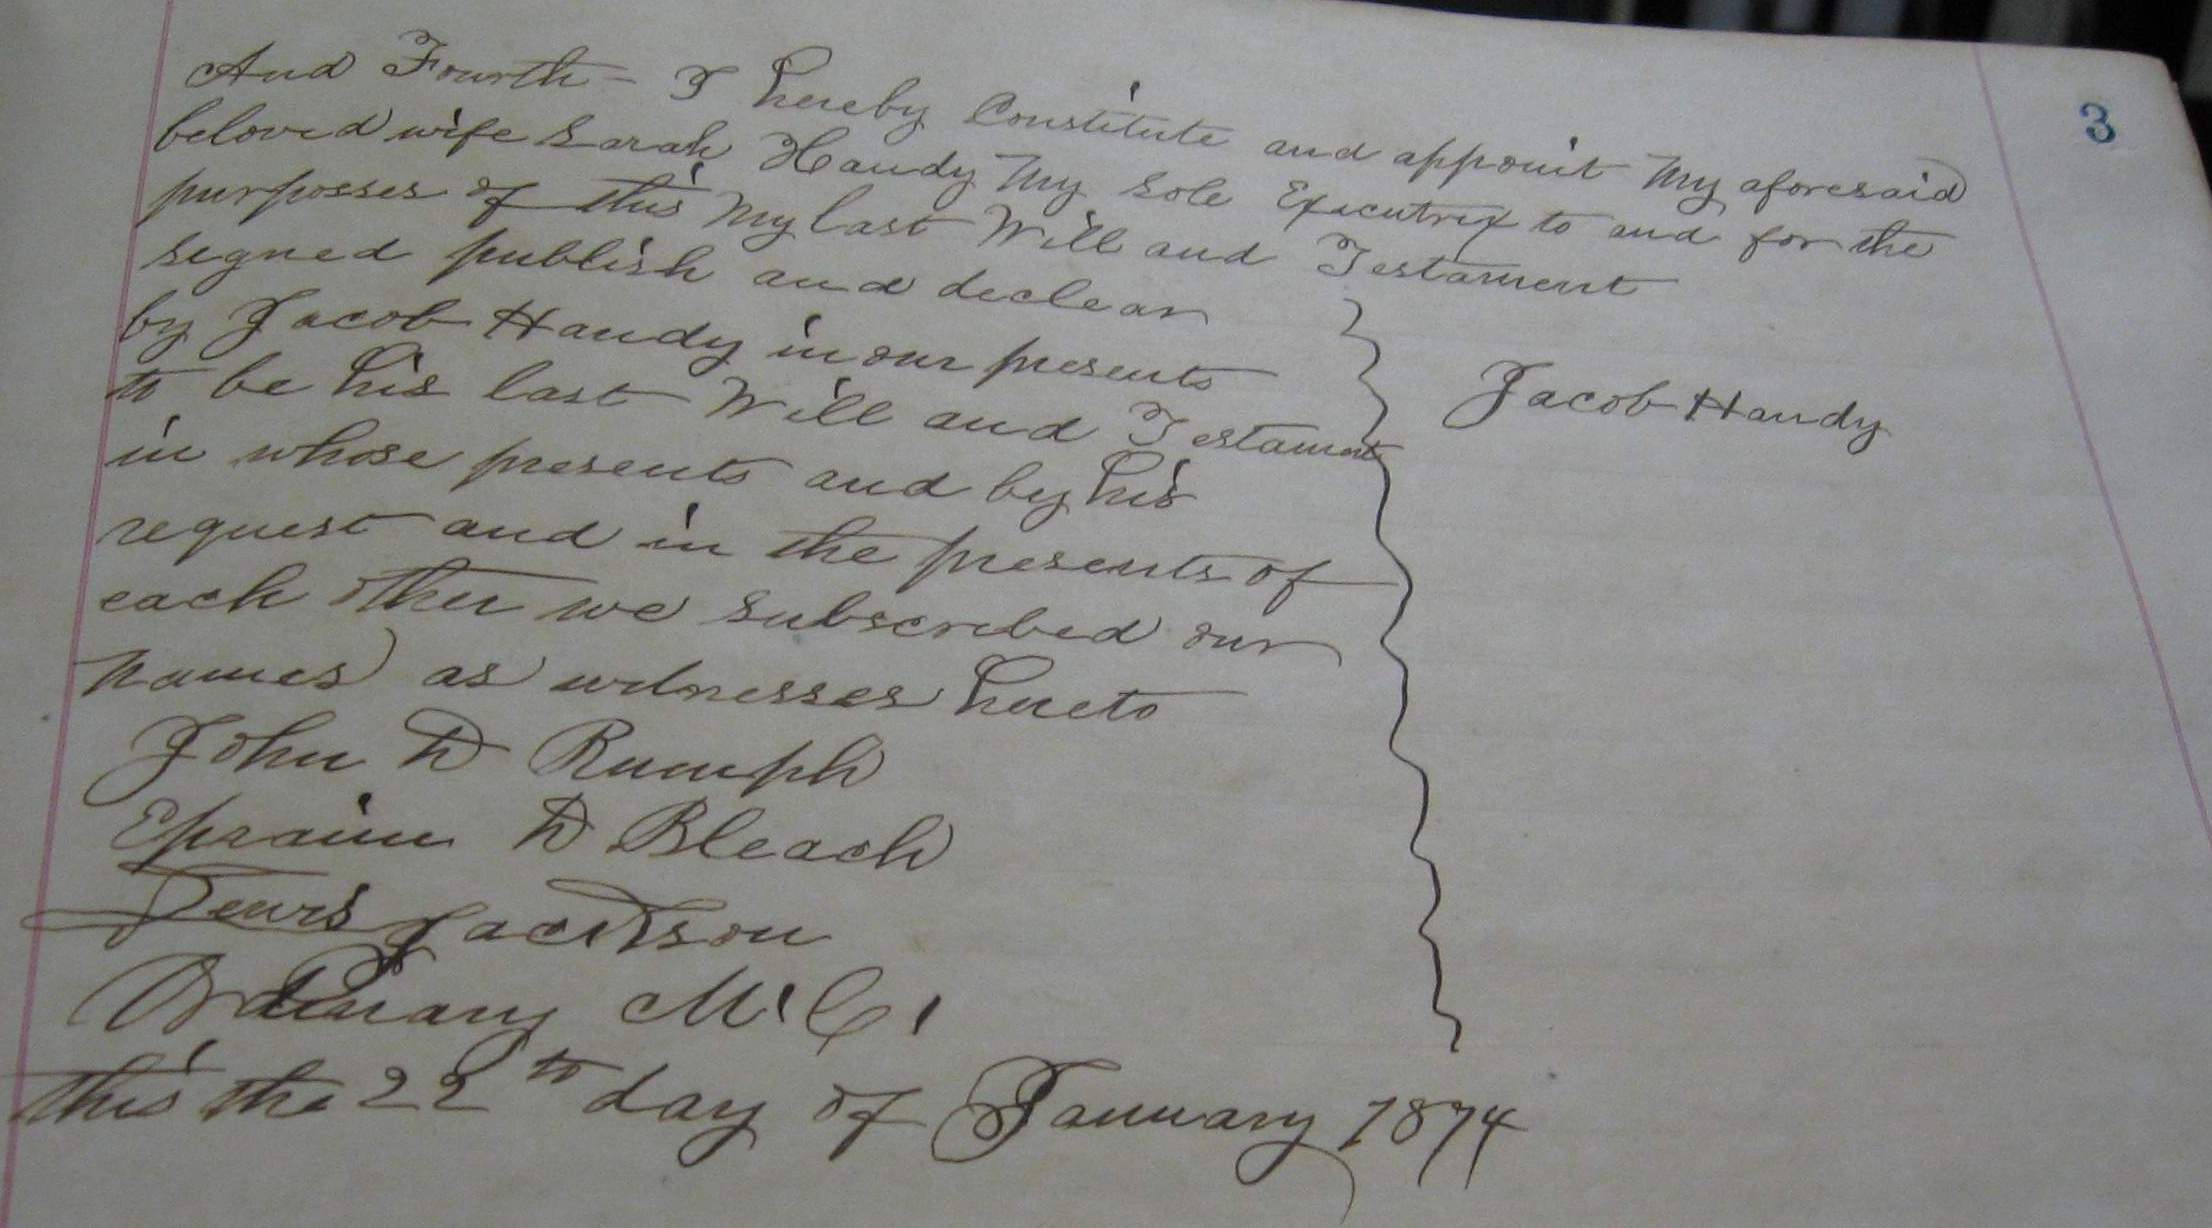 3
And Fourth - I hereby Constitute and appoint My aforesaid
beloved wife Sarah Handy My Sole Executrix to and for the
purposses of this My last Will and Testament
signed publish and declear
by Jacob Handy in our presents
to be his last Will and Testament
Jacob Handy
in whose presents and by his
request and in the presents of
each other we subscribed our
names as witnesses hereto
John D Rumph
Epraim D Bleach
Lewis Jackson
Ordinary M. C.
this the 22th day of January 1874